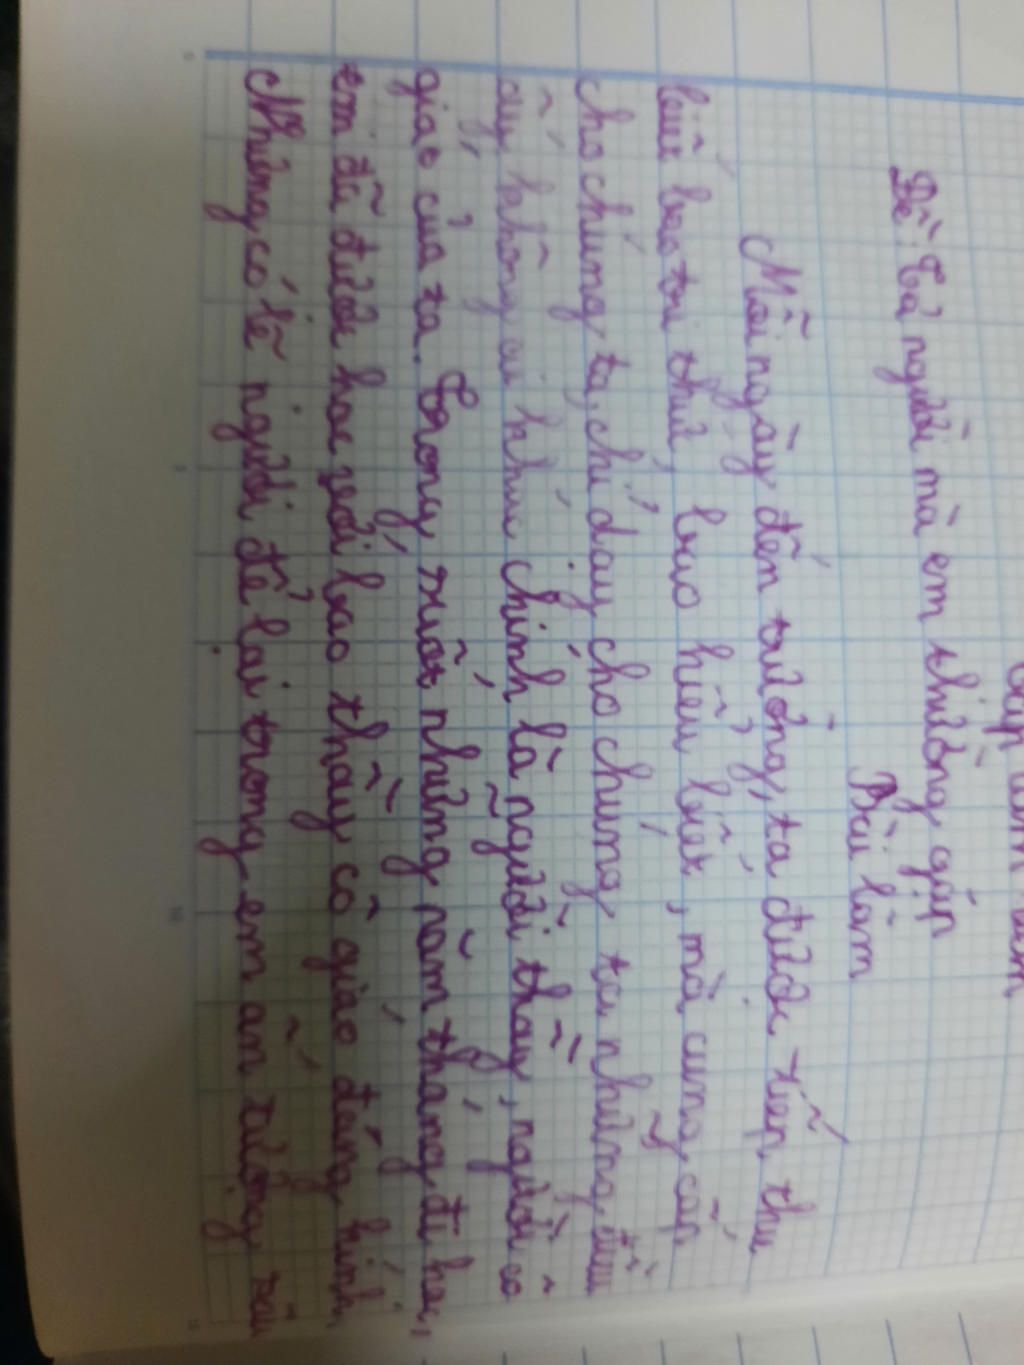 Đề: Tả người mà em thường gặp
Bài làm
Mỗi ngày đến trường, ta được tiếp thu
biết bao tri thức, bao hiểu biết, mà cung cấp
cho chúng ta, chỉ dạy cho chúng ta những điều
đấy không ai khác chính là người thầy, người cô
giáo của ta. Trong suốt những năm tháng đi học,
em đã được học với bao thầy cô giáo đáng kính.
Nhưng có lẽ người để lại trong em ấn tượng sâu